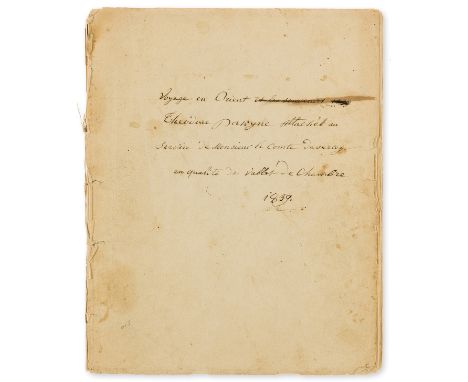 Voyage en Orient
Théodore paroyne attaché au
Service de Monsieur le Comte
en qualité de vallet de Chambre
1839.